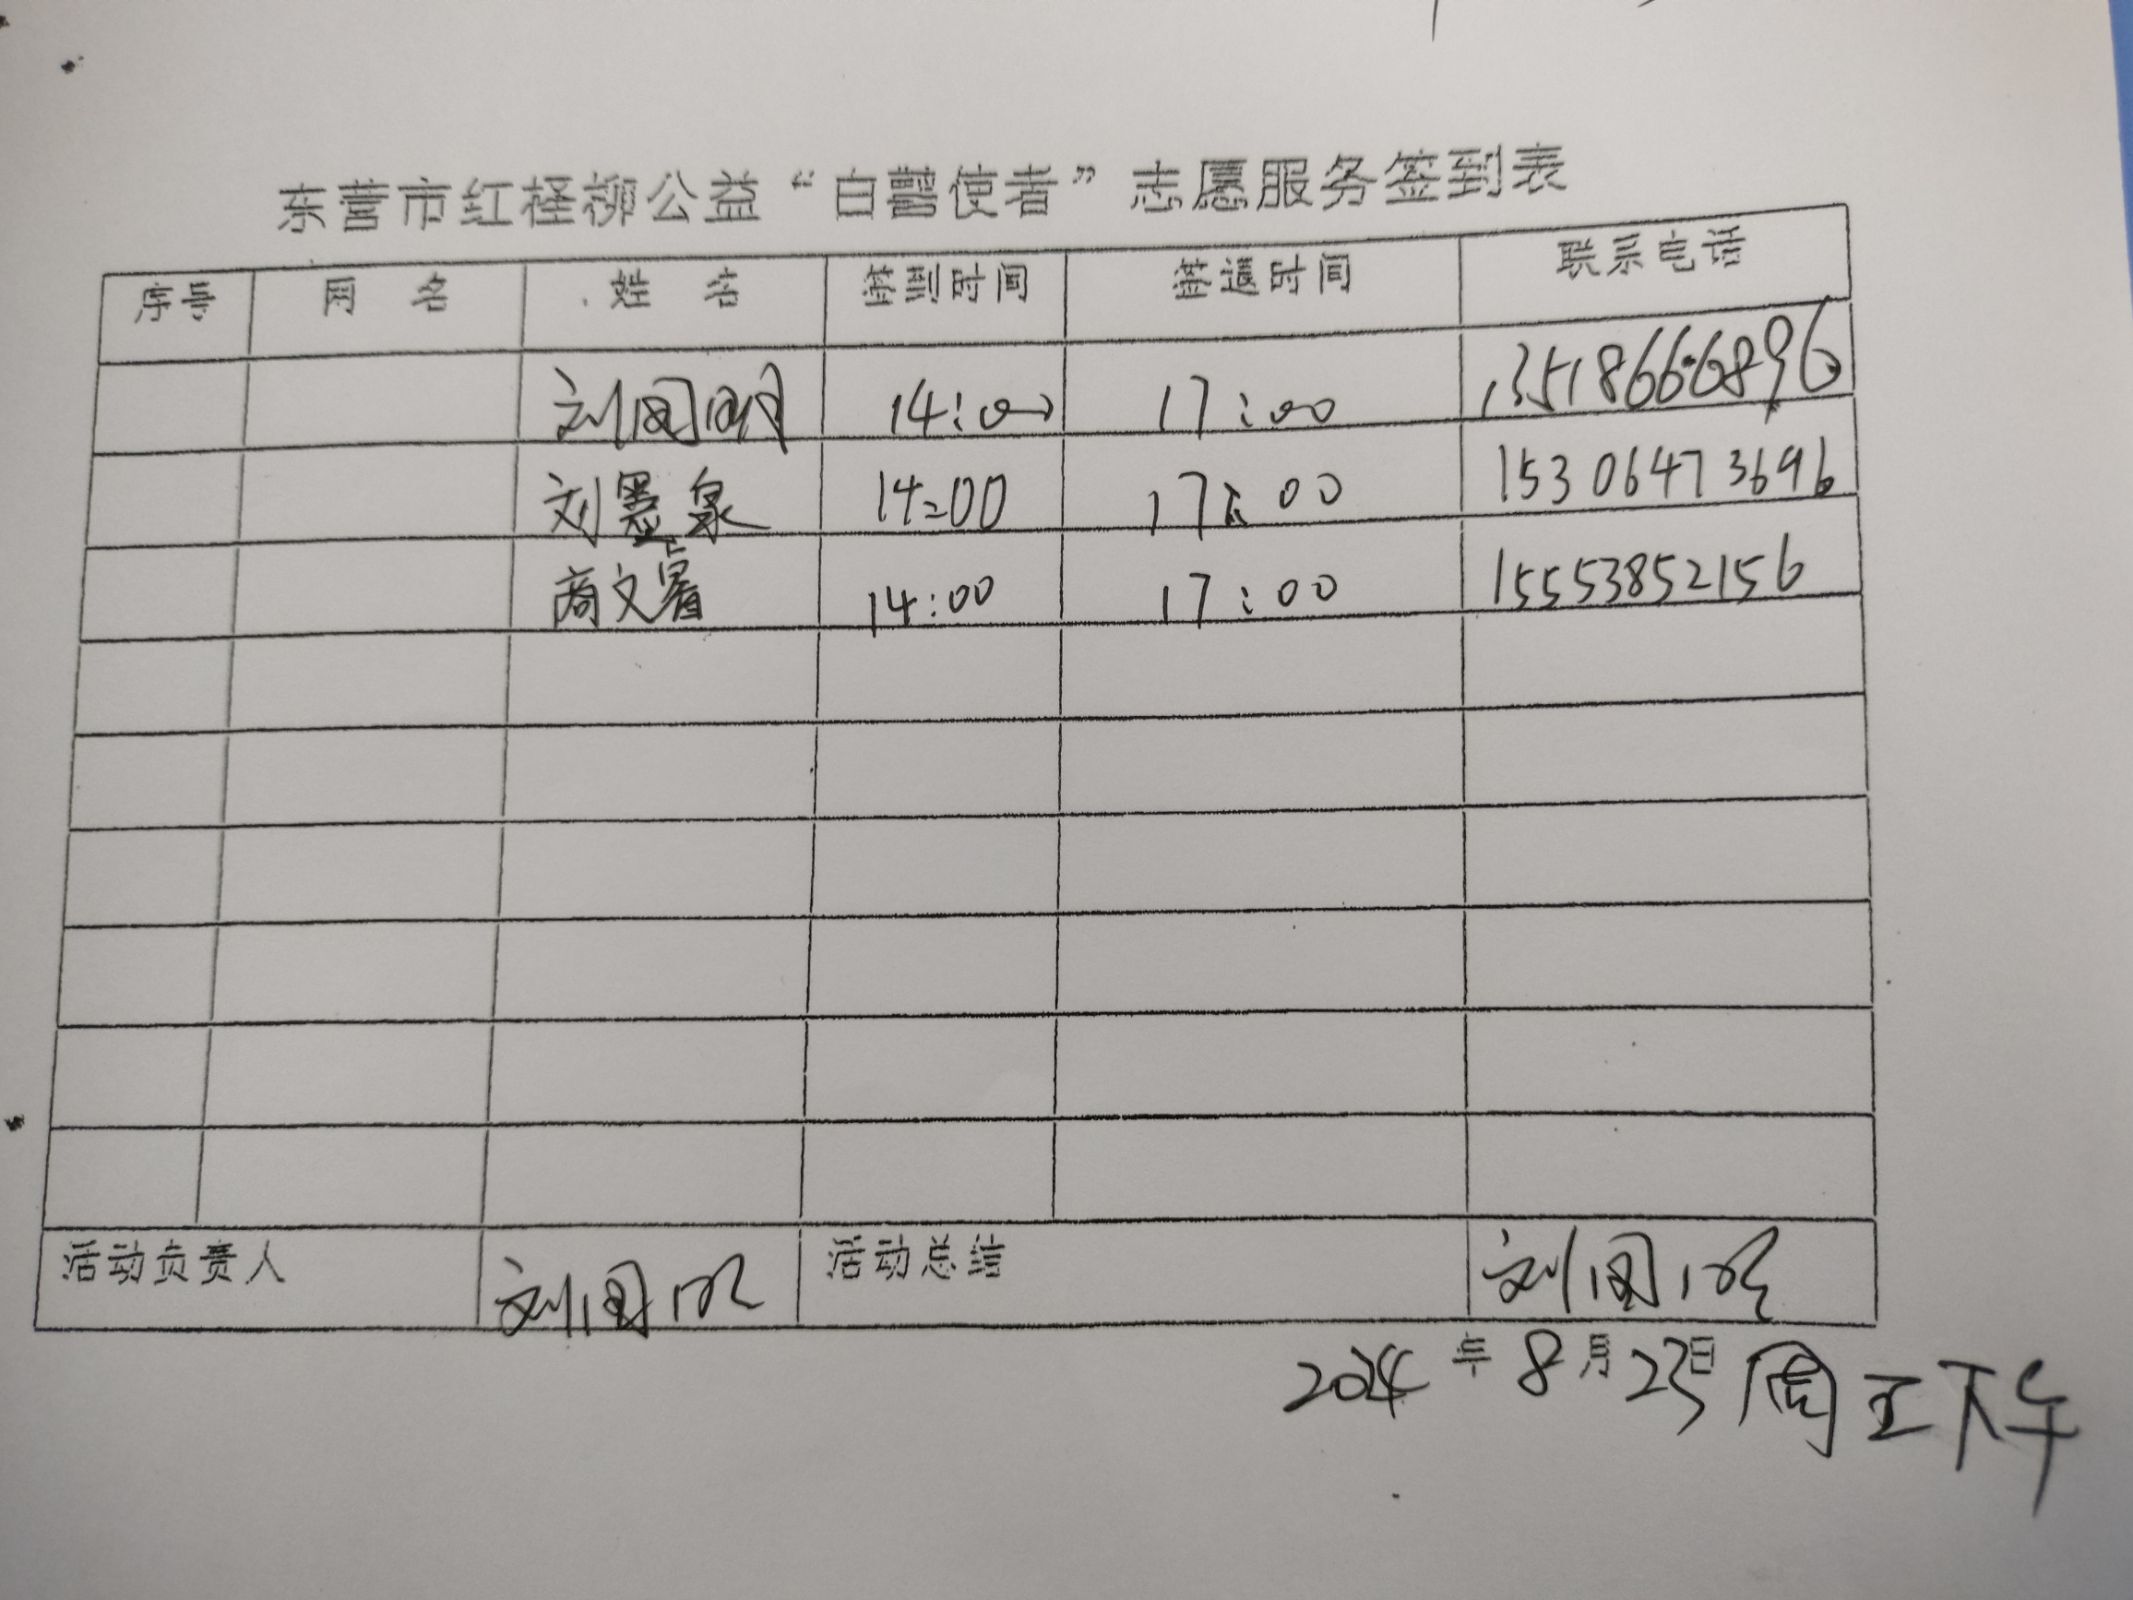 东营市红柽柳公益“白鹭使者”志愿服务签到表
序号 网 名 姓 名 签到时间 签退时间 联系电话
刘国明 14:00 17:00 13518666896
刘墨泉 14:00 17:00 15306473696
商文 14:00 17:00 15553852156
活动负责人 刘国明 活动总结 刘国明
2024年8月23日 周五下午